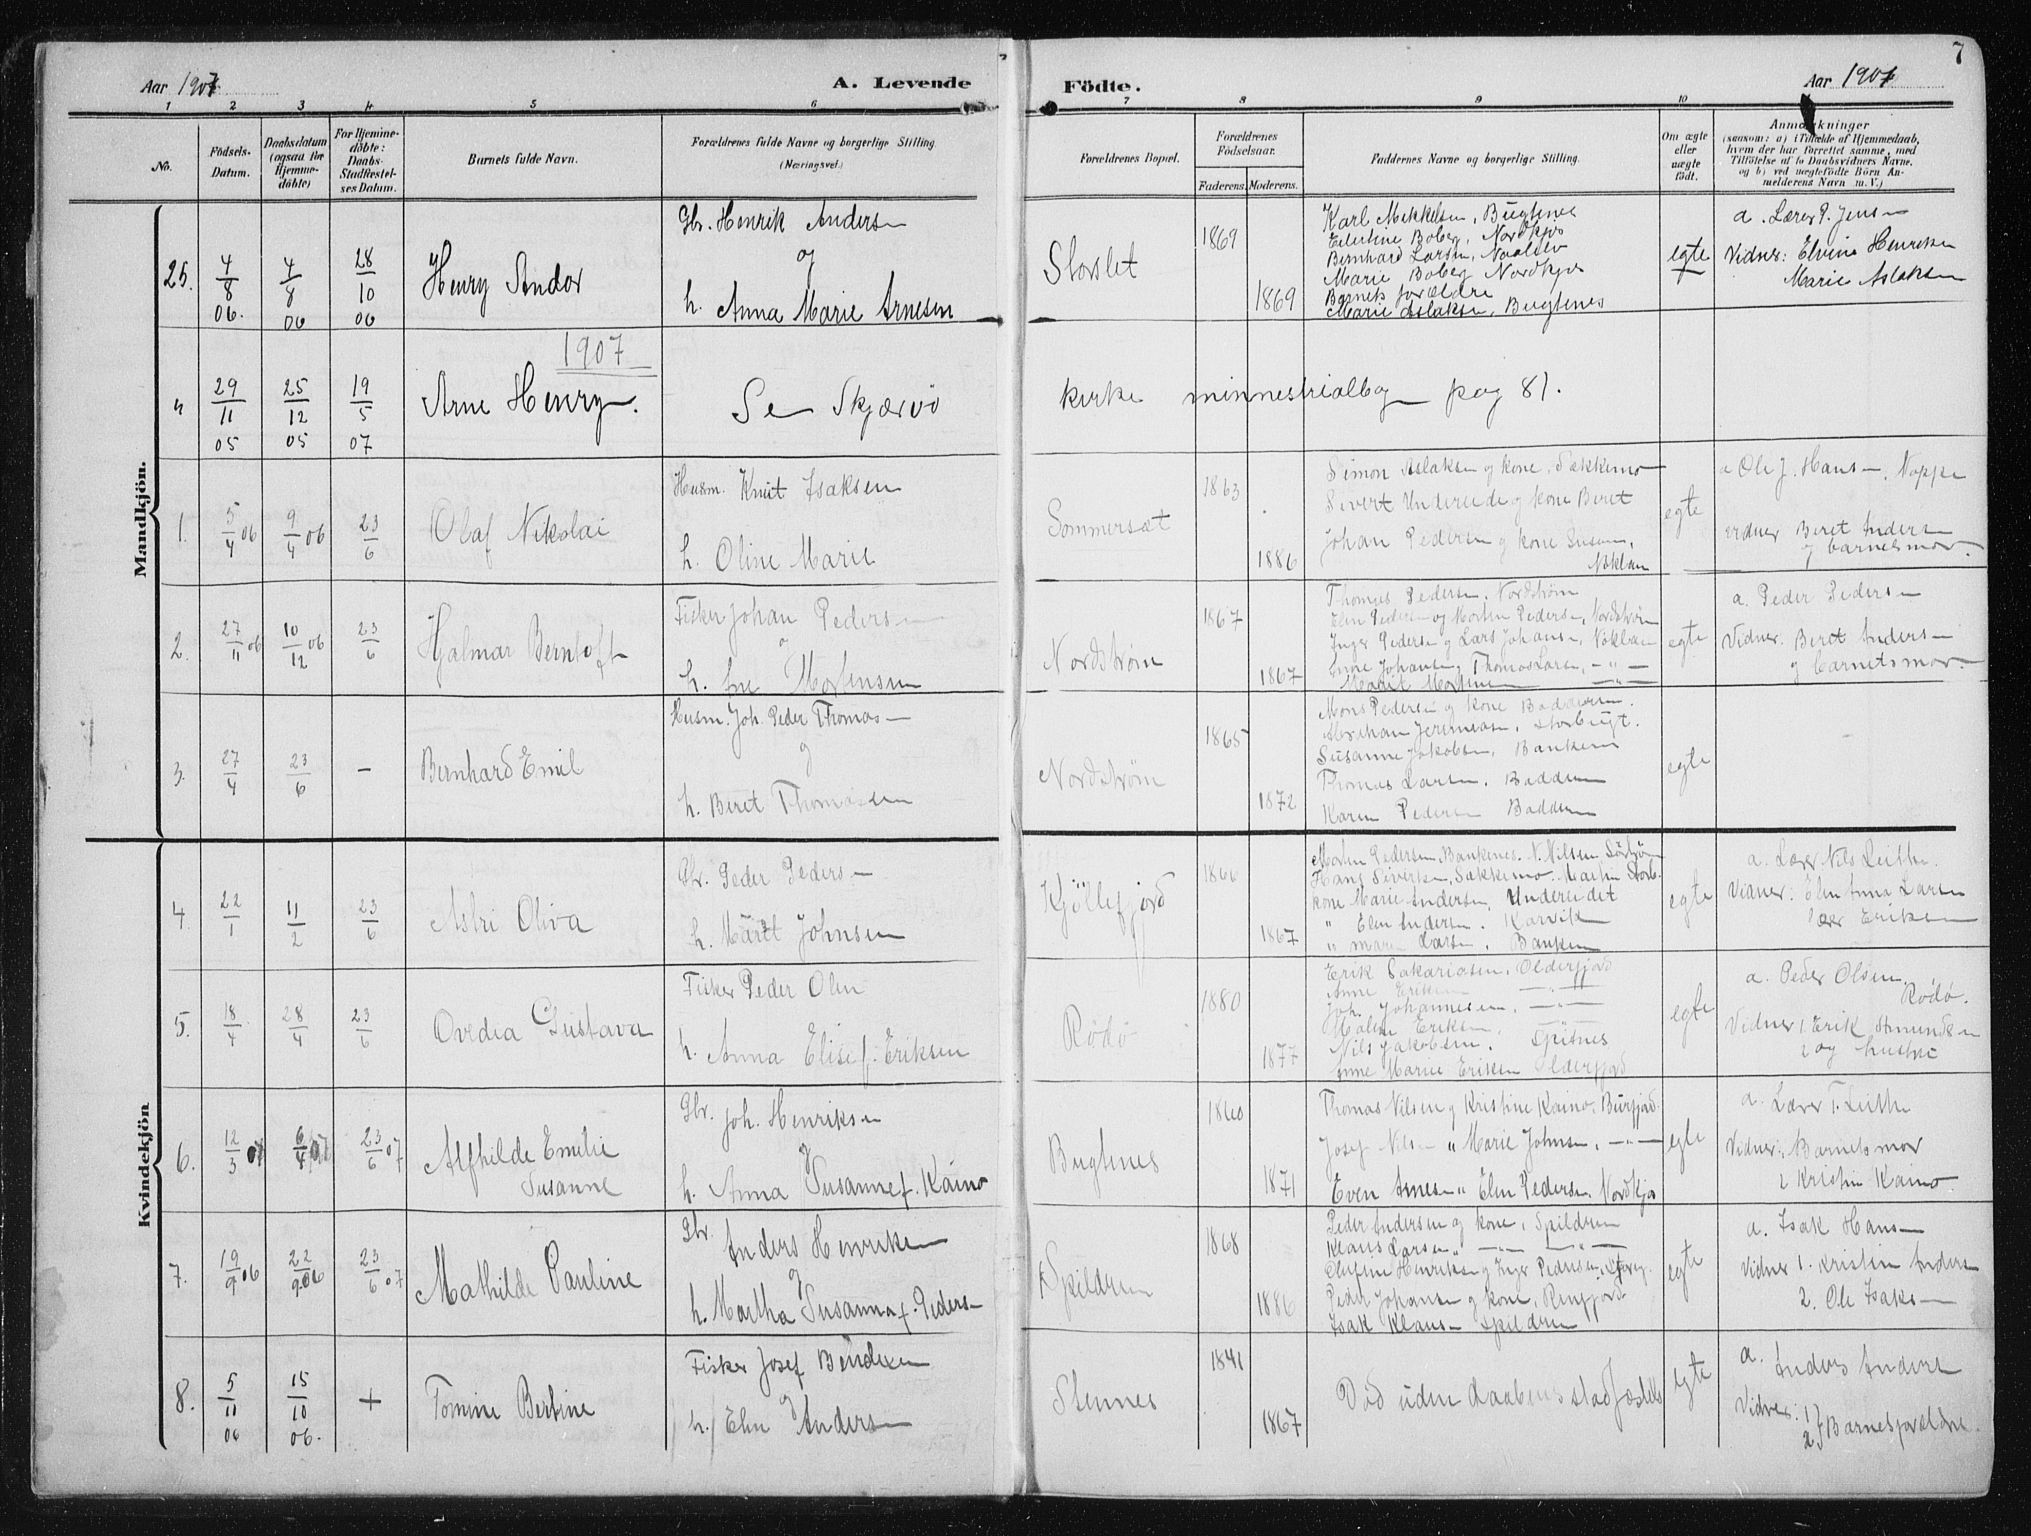 7
Aar 1907
A. Levende
Födte.
Aar 1907
1 2 3 4 5 6 7 8 9 10
No.
Födsels-Datum.
Daabsdatum (ogsaa for Hjemme-döbte)
For Hjemme-döbte: Daabs-Stadfæstel-ses Datum.
Barnets fulde Navn.
Forældrenes fulde Navne og borgerlige Stilling (Næringsvei.)
Forældrenes Bopæl.
Forældrenes Födselsaar.
Faderens. Moderens.
Faddernes Navne og borgerlige Stilling.
Om ægte eller uægte födt.
Anmærkninger
(saasom: a) i Tilfælde af Hjemmedaab, hvem der har forrettet samme, med Tilföielse af to Daabsvidners Navne. og b) ved uægtefödte Börn An-melderens Navn m. V.)
Mandkjön.
25. 4/8 06. 4/8 06 28/10 06
Henry Andor
Gbr. Henrik Anders
og
h. Anna Marie Arnesen
Storslet
1869
1869
Karl Mikkelsen, Bugtenes
Edertine Boberg, Nordkjos
Bernhard Larsen,
Marie Boberg Nordkjos
Barnets forældre
Marie Aslaksen, Bugtenes
egte
a. Lærer P. Jens
Vidner: Elvine Henriksen
Marie Aslaksen
1907
" 29/11 05 25/12 05 19/5 07
Arne Henry.
Se Skjærvö
kirke ministerialbog pag 81.
1. 5/4 06 9/4 06 23/6
Olaf Nikolai
Husm. Knut Isaksen
h. Oline Marie
Sommersæt
1863
1886
Simon Aslaksen og kone, Sækkemo
Sivert Undereide og kone Beret
Johan Pedersen og kone Susan,
Noklan
egte
a Ole J. Hans, Noppe
Vidner Beret Anders
og barnets mor.
2. 27/11 06 10/12 06 23/6
Hjalmar Berntoft
Fisker Johan Peders
og
h. Ane Mortensen
Nordstrøm
1867
1867
Thomas Pedersen, Nordstrøm
Elen Pedersen og Morten Pedersen, Nordstrøm
Inger Pedersen og Lars Johans, Noklan
Anne Johansen, Thomas Larsen, — " —
Marit Mortensen — " —
egte
a. Peder Peders
Vidner: Beret Anders
og barnets mor.
3. 27/4 23/6 –
Bernhard Emil
Husm. Joh. Peder Thomas
og
h. Beret Thomassen
Nordstrøm
1865
1872
Mons Pedersen og kone Badderen.
Abraham Jeremeasn, Storbugt.
Susanne Jakobsen, Bankenes
Thomas Larsen. Badderen
Karen Pedersen Badderen
egte
Kvindekjön
4. 22/1 11/2 23/6
Astri Oliva
Gbr. Peder Peders
h. Marit Johnsen
Kjöllefjord
1866
1867
Morten Pedersen, Bankenes. N. Nilsen
Hans Sivertsen, Sakkemo. Martin Storb.
kone Marie Andersen, Undereidet
" Elen Andersen. Karvik
" Maren Larsen. Banken
egte
a. Lærer Nils Leithe.
Vidner: Elen Anna Larsen
Eriksen
5. 18/4 28/4 23/6
Ovedia Gustava
Fisker Peder Olsen
h. Anna Elise f. Eriksen
Rödö
1880
1877
Erik Sakariasen, Olderfjord
Anne Eriksen — " —
Joh. Johannesen, — " —
Malene Eriksen,
Nils Jakobsen. Spisnes
Anne Marie Eriksen Olderfjord
egte
a. Peder Olsen
Rödö.
Vidner 1 Erik Amundsen
2 og hustru
6. 12/3 07 6/4 07 23/6 07
Alfhilde Emilie
Susanne
Gbr. Joh. Henriks
og
h. Anna Susanne f. Kaino
Bugtenes
1860
1871
Thomas Nilsen og Kristine Kaino, Burfjord.
Josef Nilsen " Marie Johnsen, — " —
Even Arnesen " Elen Pedersen, Nordkjos
egte
a. Lærer T. Leithe
Vidner: Barnets mor
2 Kristin Kaino
7. 19/9 06 22/9 06 23/6 07
Mathilde Pauline
Gbr. Anders Henriksen
og
h. Martha Susanna f. Peders
Spildren
1868
1886
Peder Andersen og kone, Spildren
Klaus Larsen " — " —
Olufine Henriksen og Inger Pedersen,
Peder Johansen og kone, Reinfjord
Isak Klaus Spildren
egte
a. Isak Hans
Vidner 1. Kristin Anders
2. Ole Isaks
8. 5/11 06 15/10 06. +
Tomine Bertine
Fisker Josef Bendixen
og
h. Elen Anders
Stennes
1841
1867
Död uden daabens stadfæstelse
egte
a. Anders Anders
Vidner: 1
2 } Barnesforældre